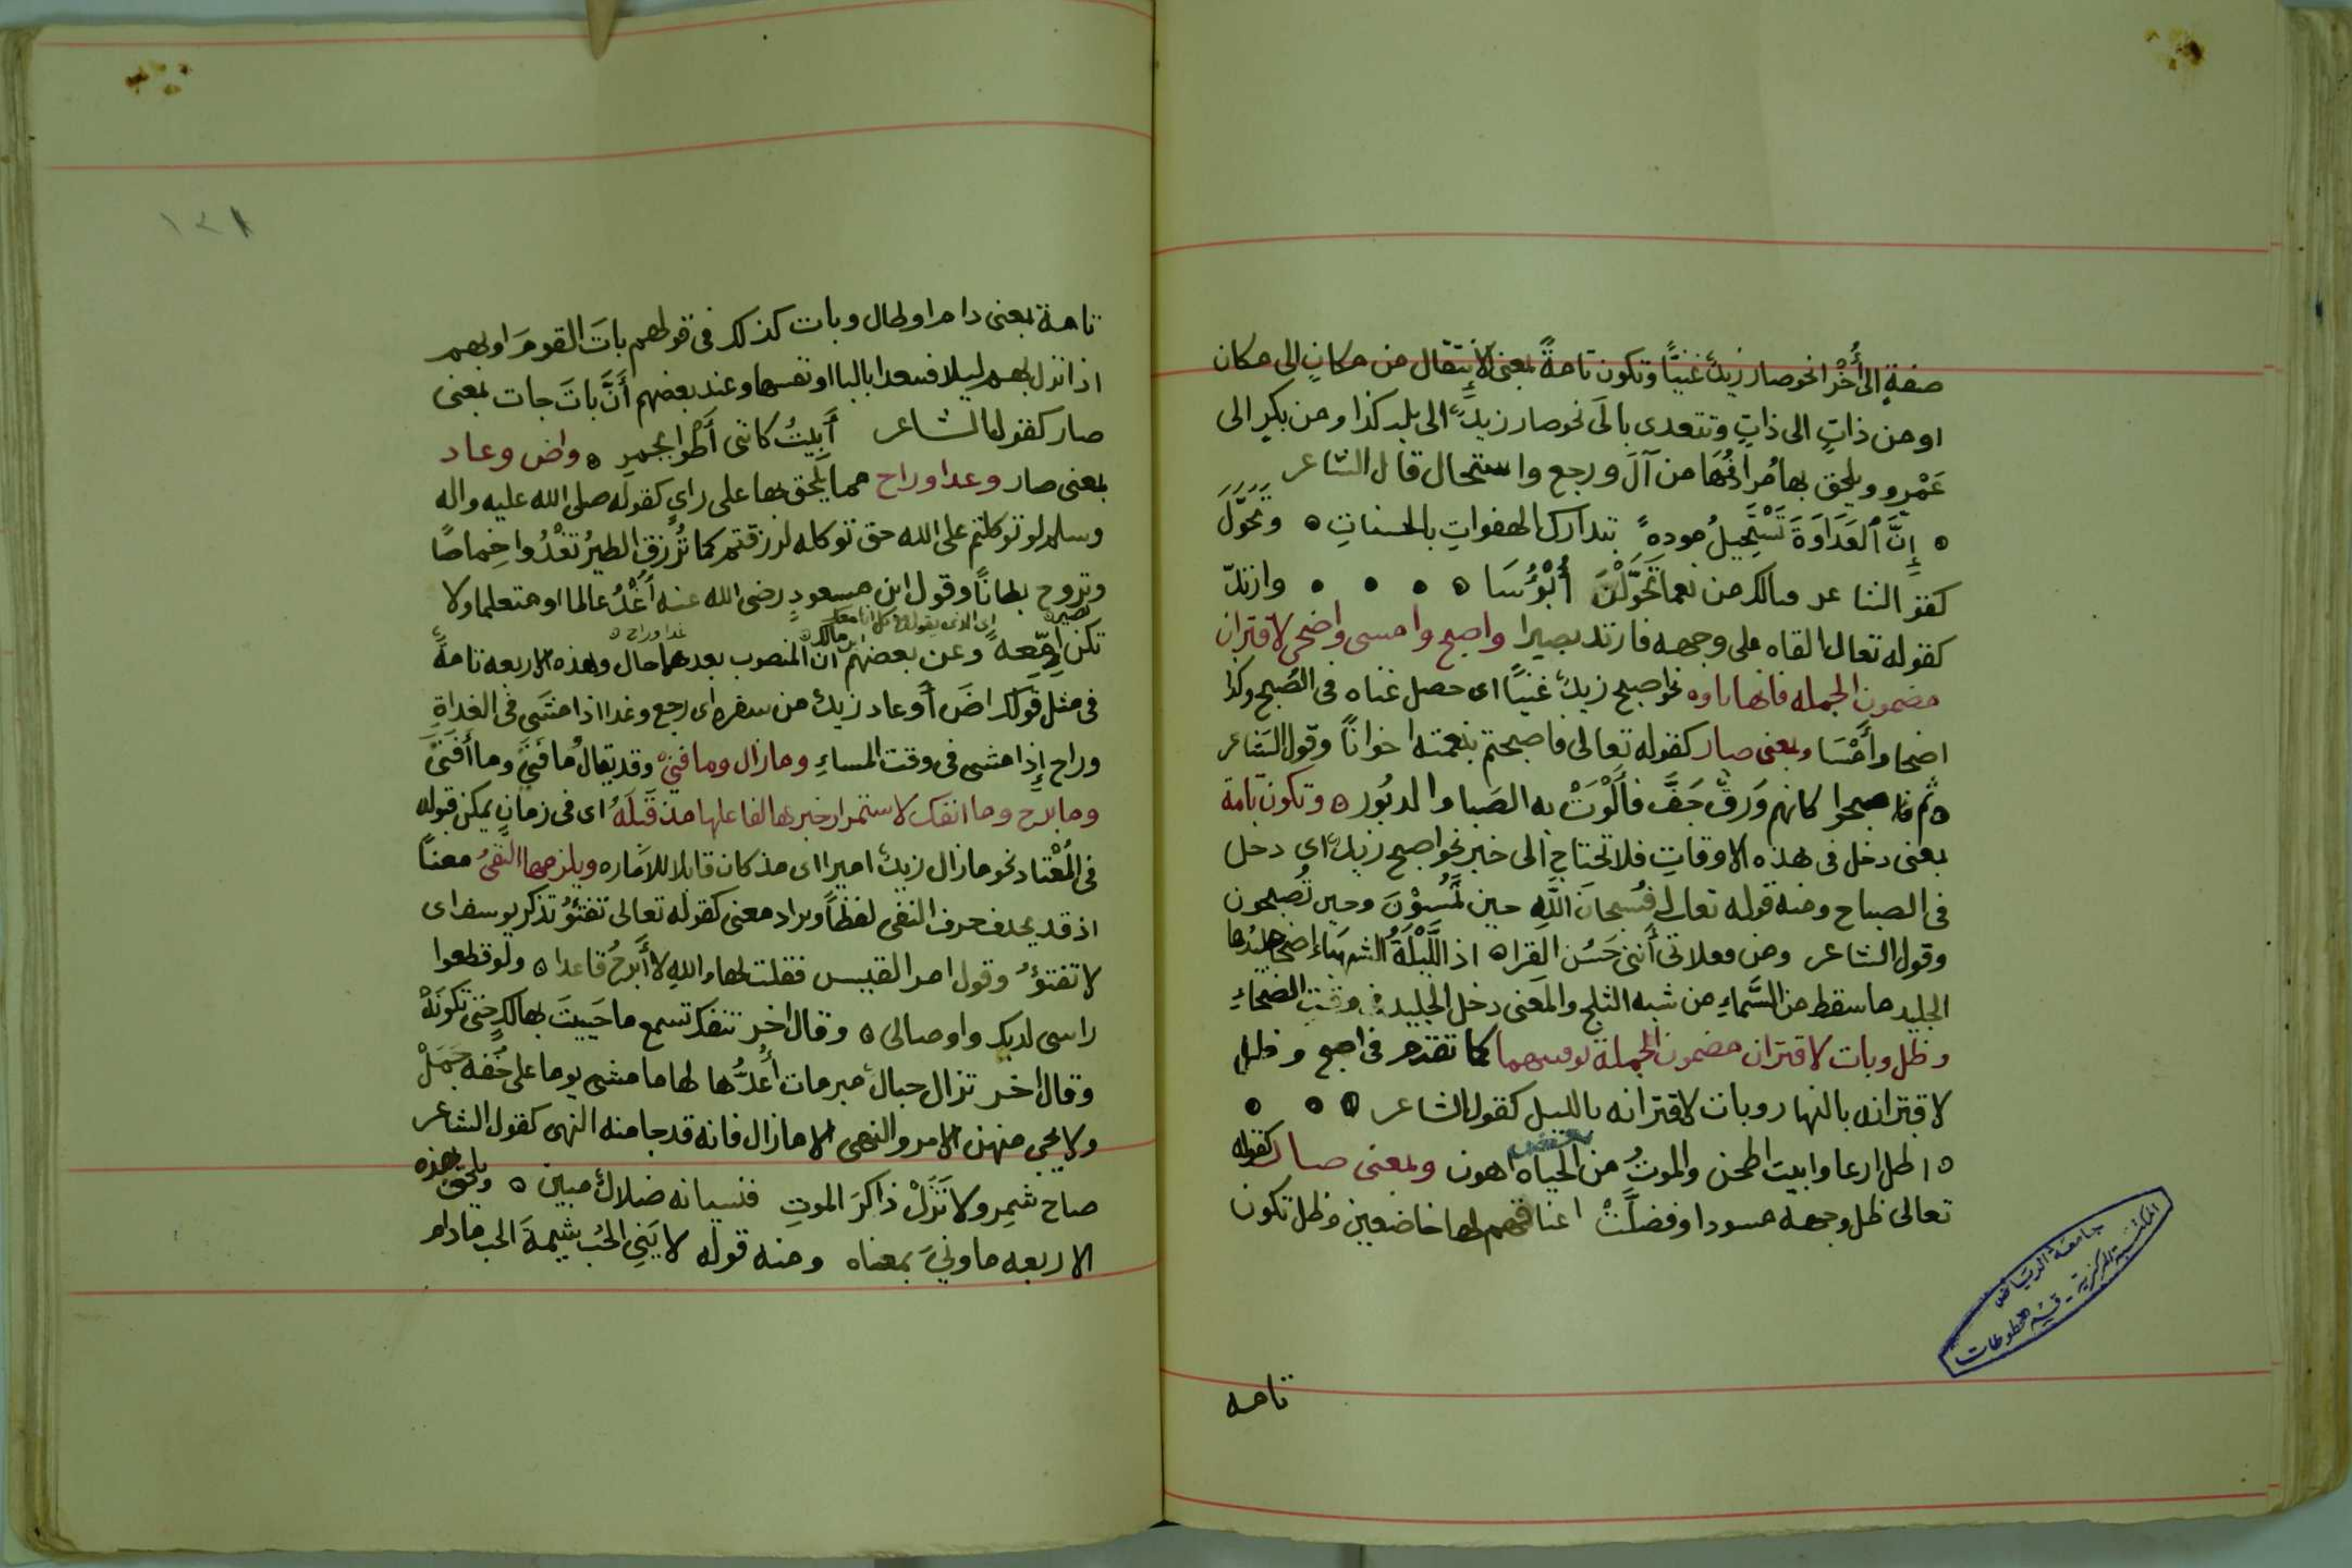 صفةٍ الى أُخْرا نحو صار زيدٌ غنيًّا وتكون تامةً بمعنى الإنتقال من مكانٍ الى مكان
او من ذاتٍ الى ذاتٍ وتتعدى بالَى نحو صار زيدٌ الى بلد كذا ومن بكرٍ الى
عَمْرٍو ويلحق بها مُرادفُهَا من آلَ ورجع واستحال قال الشاعر
إِنَّ ٱلعَدَاوَةَ تَسْتَحِيلُ مودةً بتدارك الهفواتِ بالحسناتِ ٥ وتَحَوَّلَ
كقول الشاعر فيالك من نعما تَحَوَّلْنَ أَبْؤُسَا ٥ وارتدّ
كقوله تعالى القاه على وجهه فارتد بصيرا واصبح وامسى واضحى لاقتران
مضمون الجمله فانها باوه نحو اصبح زيدٌ غنيًّا اى حصل غناه فى الصُبح وكذا
اضحا وأَمْسَا وبمعنى صار كقوله تعالى فاصبحتم بنعمته اخوانًا وقول الشاعر
ثم فاصبحوا كانهم وَرَقٌ جَفَّ فأَلْوَتْ به الصَبا والدبُور ٥ وتكون تامة
بمعنى دخل فى هذه الاوقاتِ فلا تحتاج الى خبر نحو اصبح زيدٌ اى دخل
فى الصباح ومنه قوله تعالى فسُبحانَ اللَّهِ حين تُمْسُوْنَ وحين تُصبحون
وقول الشاعر ومن فعلاتى أننى حَسَن القراه اذ اللَّيْلَةُ الشهباء اضحا جليدُها
الجليد ما سقط من السَّماءِ من شبه الثلج والمعنى دخل الجليد فى وقت الضحاءِ
وظل وبات لاقتران مضمون الجملة بوقتيهما كما تقدم فى اصبح وظل
لاقترانه بالنهار وبات لاقترانه بالليل كقول الشاعر
٥ اظل ارعا وابيت اطحن والموتُ من بعض الحياه اهون وبمعنى صار كقوله
تعالى ظل وجهه مسودا وفضلَّتْ اعناقهم لها خاضعين وظل تكون
تامه
جامعة الرياض
المكتبة المركزية - قسم المخطوطات
١٢١
تامة بمعنى دام او طال وبات كذلك فى قولهم باتَ القومَ او بهم
اذا نزل بهم ليلا فيتعدا بالبا او نفسها وعند بعضهم أَنَّ باتَ جات بمعنى
صار كقول الشاعر أَبِيتُ كانى أُطْوا بجمرِ ٥ واض وعاد
بمعنى صار وغدا وراح مما يلحق بها على رايٍ كقوله صلى الله عليه واله
وسلم لو توكلتم على الله حق توكله لرزقتم كما تُرزق الطيرُ تغْدُوا خِماصًا
وتروح بطانًا وقول ابن مسعودٍ رضى الله عنه أُغْدُ عالما او متعلما ولا
تكن إِمَّعِهً وعن بعضهم ابن مالك ان المنصوب بعدهما حال وهذه الاربعه تامةً
اى الذى يقول لكل انا معك
غدا وراح
فى مثل قولك اضَ أو عاد زيدٌ من سفره اى رجع وغدا اذا مشى فى الغداةِ
وراح إِذا مشى فى وقت المساءِ وما زال وما فتئ وقد يقال ما فَتَئَ وما أَفْتئَ
وما برح وما انفك لاستمرار خبرها لفاعلها مذ قَبِلَهُ اى فى زمانٍ يمكن قبوله
فى المُعْتاد نحو ما زال زيدٌ اميرا اى مذ كان قابلا للاماره ويلزمها النفىُ معنًا
اذ قد يحذف حرف النفى لفظًا ويراد معنى كقوله تعالى تفتؤُ تذكر يوسف اى
لا تفتؤُ وقول امر القيس فقلت لها والله لا أَبرحُ قاعدا ٥ ولو قطعوا
راسى لديكِ واوصالى ٥ وقال اخر تنفك تسمع ما حَيِيتَ بهالكٍ حتى تكونَهْ
وقال اخر تزال حبالٌ مبرمات أُعدُّها لها ما مشى يوما على خُفه جَمَلْ
ولا يجى منهن الامر والنهى الا ما زال فانه قد جا منه النهى كقول الشاعر
صاح شمِر ولا تَزَلْ ذاكرَ الموتِ فنسيانه ضلالٌ مبين ٥ ويلحق بهذه
الاربعه ما ونىَ بمعناه ومنه قوله لا يَنِى الحُب شيمةَ الحب ما دام